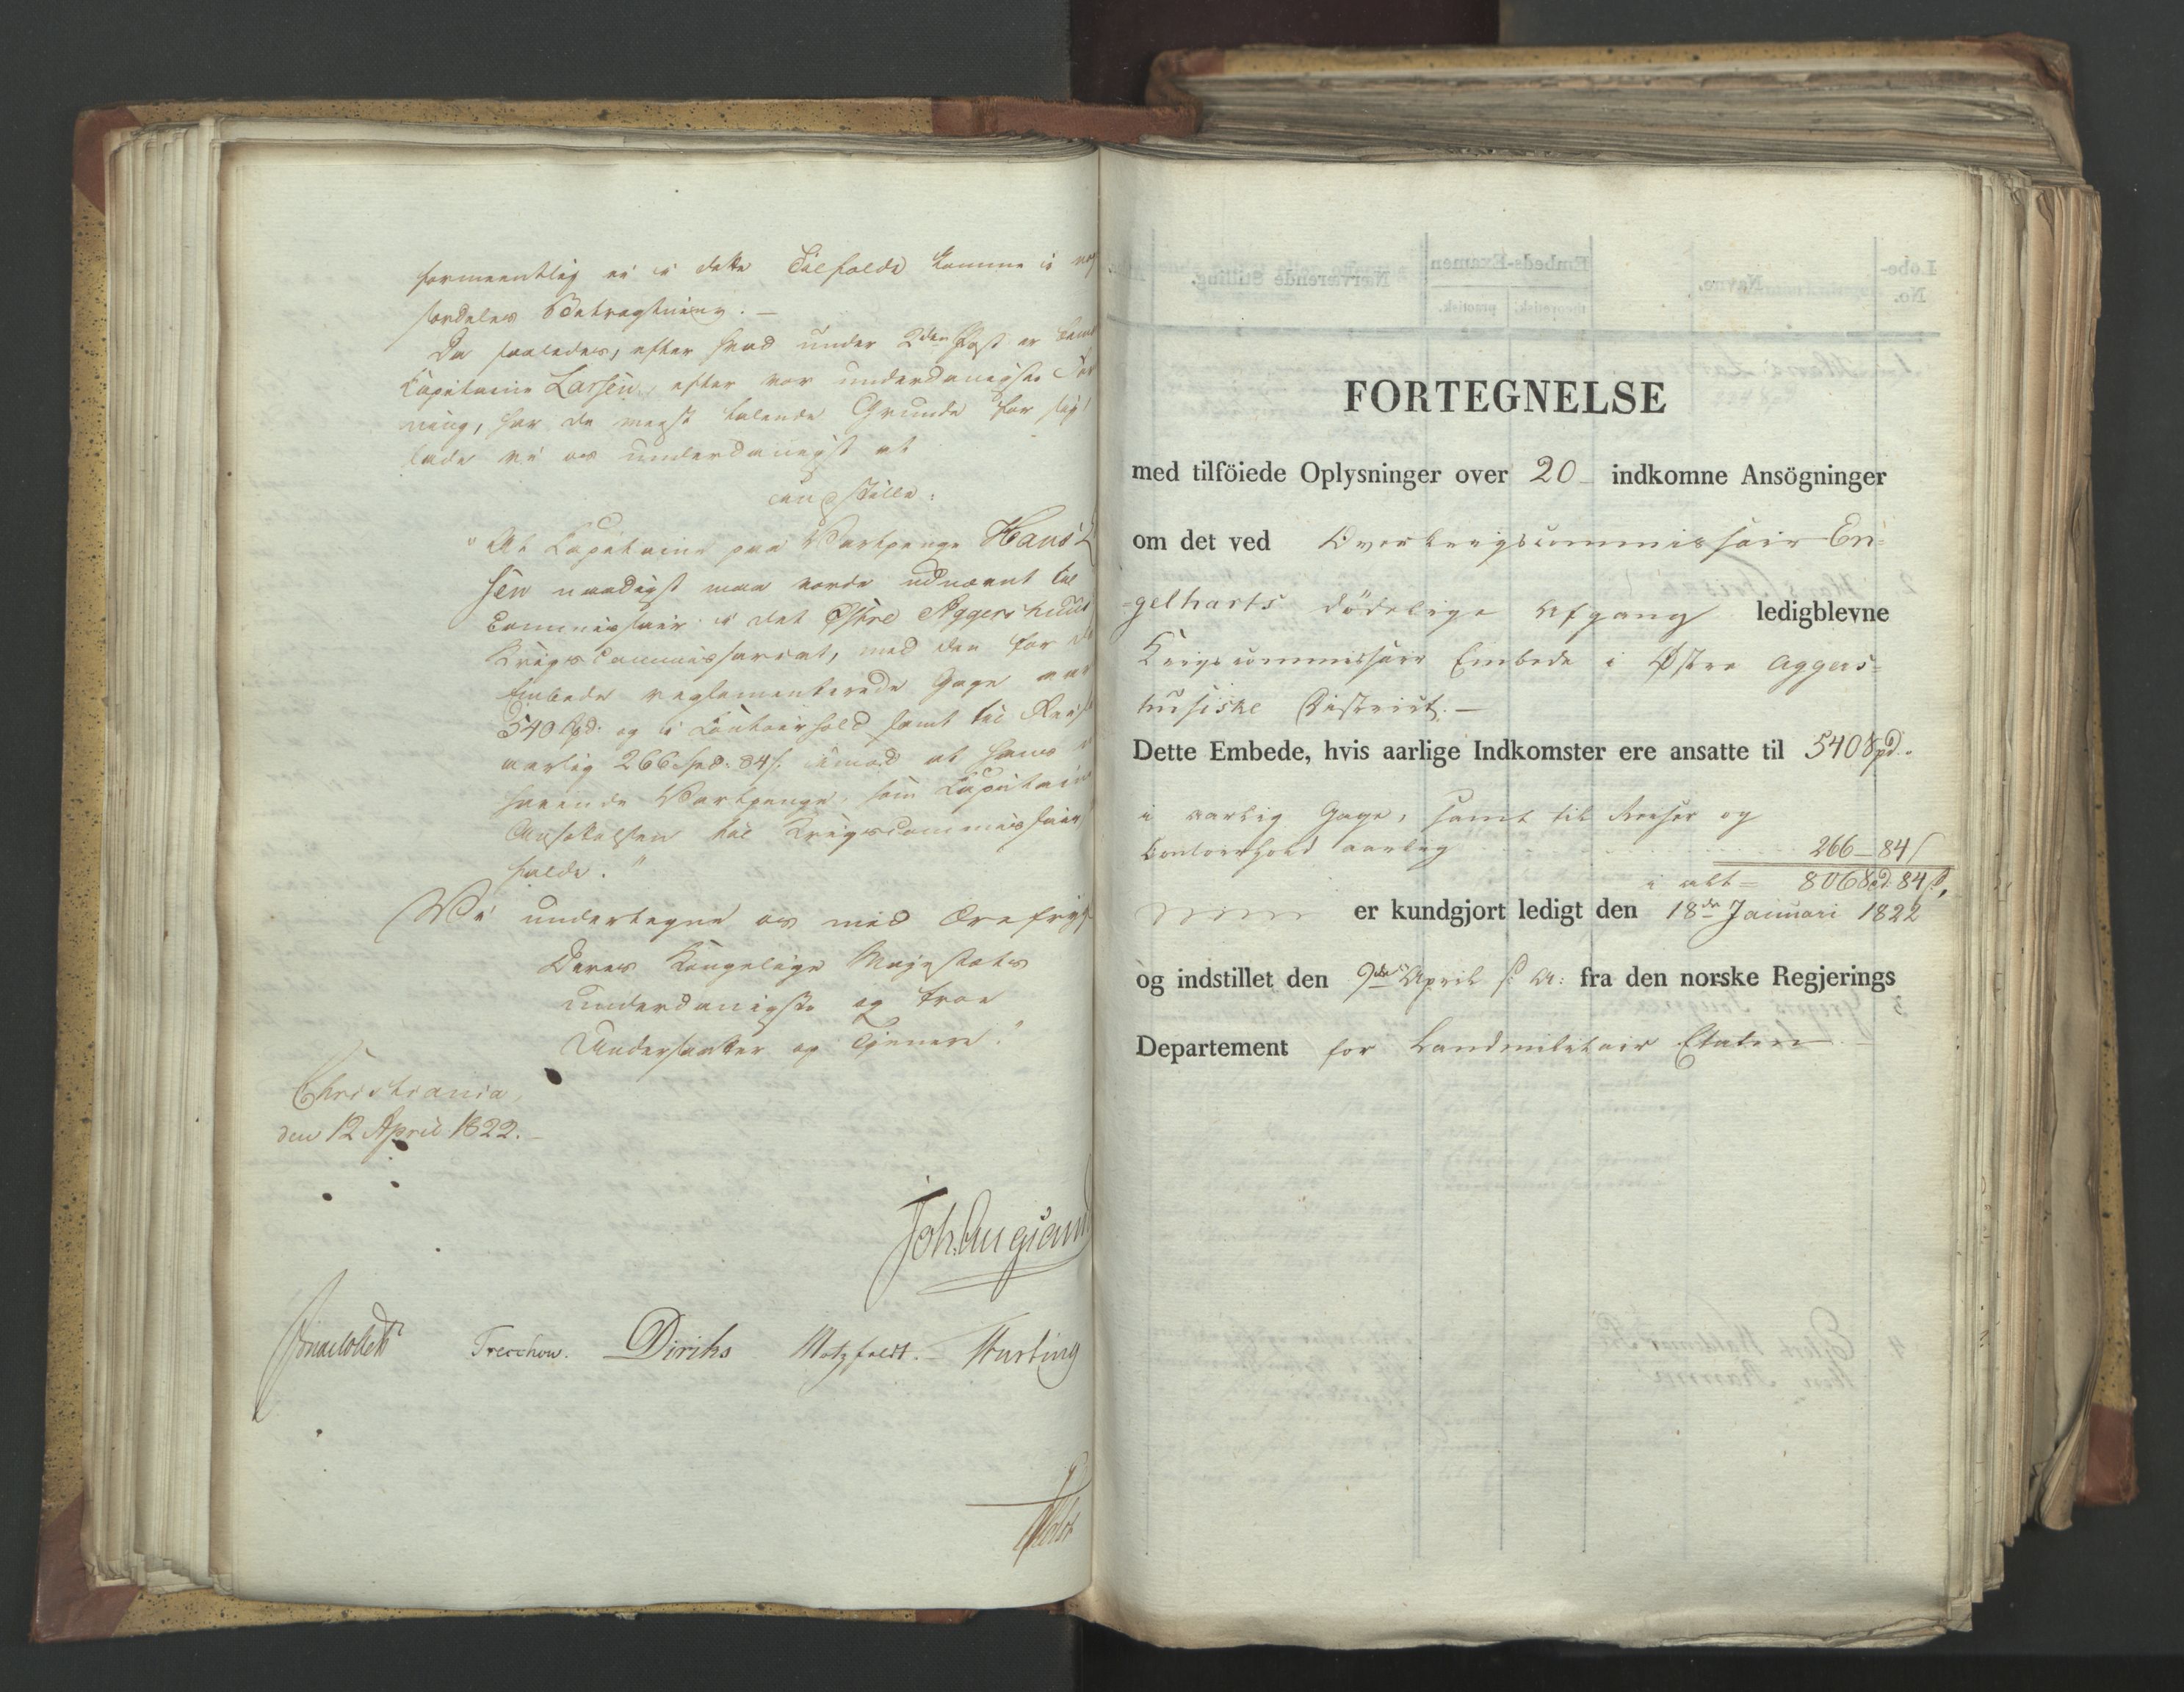 formeentlig ei i dette Tilfælde komme i
fordeles Betragtning. –
Da saaledes, efter hvad under 2den Post er
Capitaine Larsen, efter vor underdanigste
ning, har de meest talende Grunde for sig,
lade vi os underdanigst at
indstille:
"At Capitaine paa Vartpenge Hans
sen naadigst maa vorde udnævnt til
Commissair i det Østre Aggershuus
Krigscommissariat, med den for
Embede reglementerede Gage
540 Spd. og i Contoirhold samt til
aarlig 266 Spd. 84 s. imod at hans
havende Vartpenge, som Capitain
Ansættelsen til Krigscommissair,
falde."
Vi undertegne os med Ærefrygt
Deres Kongelige Majestæts
underdanigste og troe
Undersaatter og Tjenere.
Christiania,
den 12 April 1822. –
Joh. Aug. Sand
Treschow. Diriks Motzfeldt. –
Holst
FORTEGNELSE
med tilföiede Oplysninger over 20 indkomne Ansögninger
om det ved Overkrigscommissair En=
=gelharts dødelige Afgang ledigblevne
Krigscommissair Embede i Østre Aggers=
huusiske District. –
Dette Embede, hvis aarlige Indkomster ere ansatte til 540 Spd.
i aarlig Gage, samt til Reiser og
Contoirhold aarlig 266 – 84 s
i alt = 806 Spd. 84 s.
er kundgjort ledigt den 18de Januari 1822
og indstillet den 9de April s: A: fra den norske Regjerings
Departement for Landmilitair Etaten.